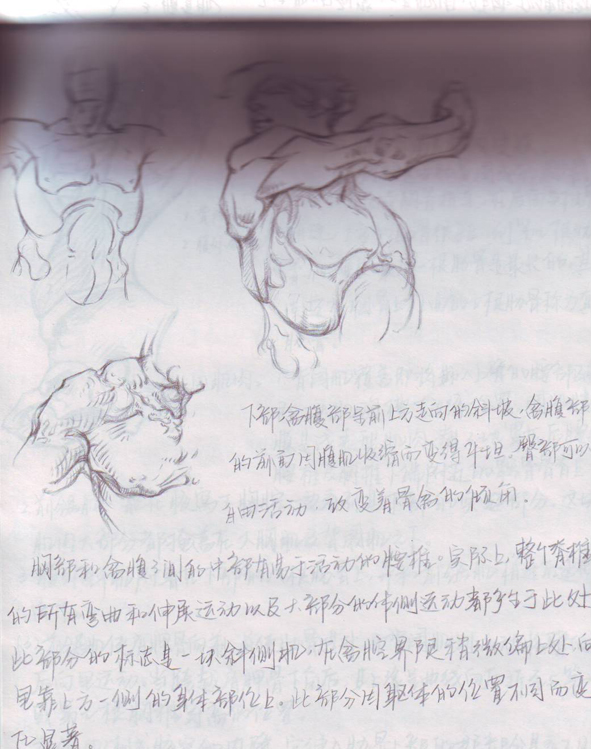 下部盆腹部呈前上方走向的斜坡、盆腹部
的前面因腹肌收缩而变得平坦，臀部可以
自由活动，改变着骨盆的倾角.
胸部和盆腹之间的中部有易于活动的腰椎。实际上，整个脊椎
的所有弯曲和伸展运动以及大部分的体侧运动都产生于此处
此部分的标志是一块斜侧肌，在盆腔界限稍微偏上处，向
里靠上方一侧的身体部位上。此部分因躯体的位置不同而变
化显著。